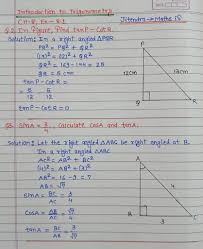 Introduction to Trigonometry
CH-8, Ex-8.1
Jitendra → Maths 10
Q2. In Figure, Find tanP - CotR
Solution: In a right angled △PQR
PR² = PQ² + QR²
(13)² = (12)² + QR²
QR² = 169 - 144 = 25
QR = 5 cm
tanP - CotR =
5/12 - 5/12
tanP - CotR = 0
P
12cm
13cm
Q
R
Q3. SinA = 3/4, Calculate cosA and tanA.
Solution: Let the right angled △ABC be right angled at B.
In a right angled △ABC
AC² = AB² + BC²
(4)² = AB² + (3)²
AB² = 16 - 9 = 7
AB = √7
SinA = BC/AC = 3/4
CosA = AB/AC = √7/4
tanA = BC/AB = 3/√7
A
4
B
3
C